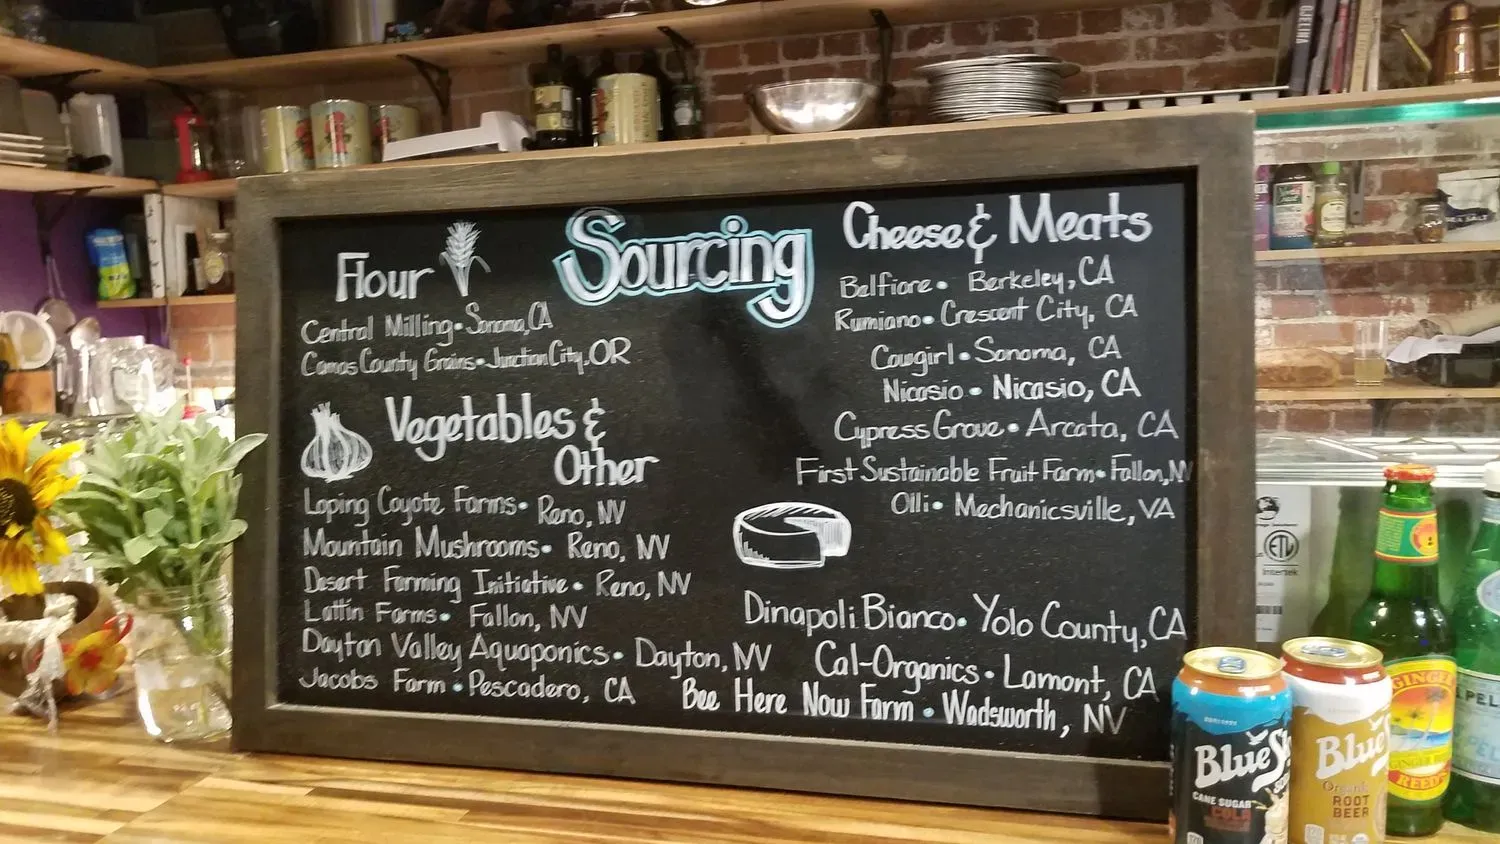 Sourcing
Flour
Central Milling • Sonoma, CA
Camas County Grains • Junction City, OR
Vegetables &
Other
Loping Coyote Farms • Reno, NV
Mountain Mushrooms • Reno, NV
Desert Farming Initiative • Reno, NV
Lattin Farms • Fallon, NV
Dayton Valley Aquaponics • Dayton, NV
Jacobs Farm • Pescadero, CA
Cheese & Meats
Belfiore • Berkeley, CA
Rumiano • Crescent City, CA
Cowgirl • Sonoma, CA
Nicasio • Nicasio, CA
Cypress Grove • Arcata, CA
First Sustainable Fruit Farm • Fallon, NV
Olli • Mechanicsville, VA
Dinapoli Bianco • Yolo County, CA
Cal-Organics • Lamont, CA
Bee Here Now Farm • Wadsworth, NV
GJELINA
ETL
Intertek
Blue Sky
CANE SUGAR
COLA
Blue
Organic
ROOT
BEER
GINGER
REED'S